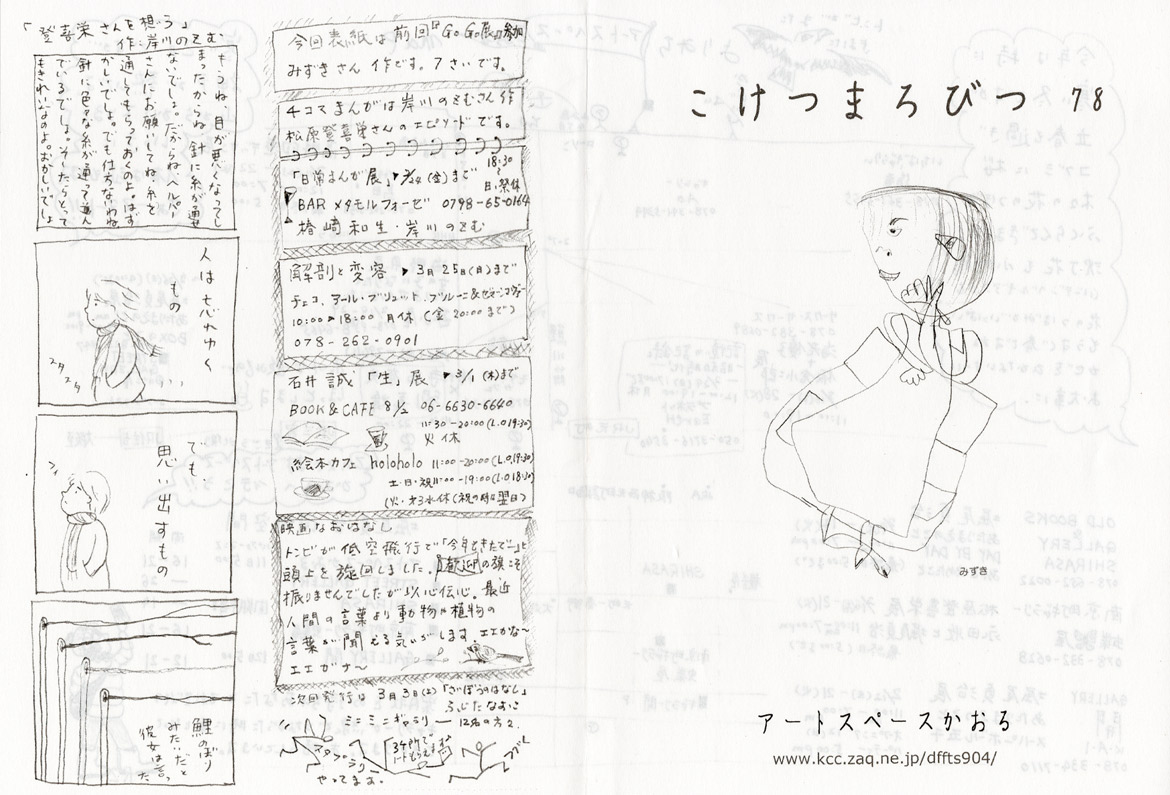 こけつまろびつ 78
みずき
アートスペースかおる
www.kcc.zaq.ne.jp/dffts904/
今回表紙は前回『Go.Go.展』参加
みずきさん作です。7さいです。
4コマまんがは岸川のぞむさん作
松原登喜栄さんのエピソードです。
18:30〜
「日常まんが展」▶2/24(金)まで
日・祭休
BAR メタモルフォーゼ 0798-65-0164
楢崎和生・岸川のぞむ
解剖と変容 ▶3月25日(日)まで
チェコ、アール・ブリュット、
10:00〜18:00 月休(金 20:00まで)
078-262-0901
石井 誠 「生」展 ▶3/1(木)まで
BOOK & CAFE 8 1/2 06-6630-6640
11:30-20:00(L.O.19:30)
火休
絵本カフェ holoholo 11:00-20:00(L.O.19:30)
土・日・祝11:00-19:00(L.O.18:30)
(火・第3水休(祝の時は翌日)
映画なおはなし
トンビが低空飛行で「今年もきたで〜」と
頭上を旋回しました。「歓迎」の旗こそ
振りませんでしたが以心伝心。最近
人間の言葉より動物や植物の
言葉が聞こえる気がします。エエかな〜
エエがな〜
次回発行は 3月3日(土)「さいぼうのはなし」
ふじたなおこ
ミニミニギャラリー 12名の方々
やってます。
「登喜栄さんを想う」
作:岸川のぞむ
もうね、目が悪くなってし
まったからね、針に糸が通せ
ないでしょ。だからね、ヘルパー
さんにお願いしてね、糸を
通してもらっておくのよ。はず
かしいでしょ。でも仕方ないわね。
針に色々な糸が通って並ん
でいるでしょ。そーしたらとって
もきれいなのよ。おかしいでしょ
人は忘れゆく
もの
スタ
スタ
でも、
思い出すもの
鯉のぼり
みたいだと
彼女は言った